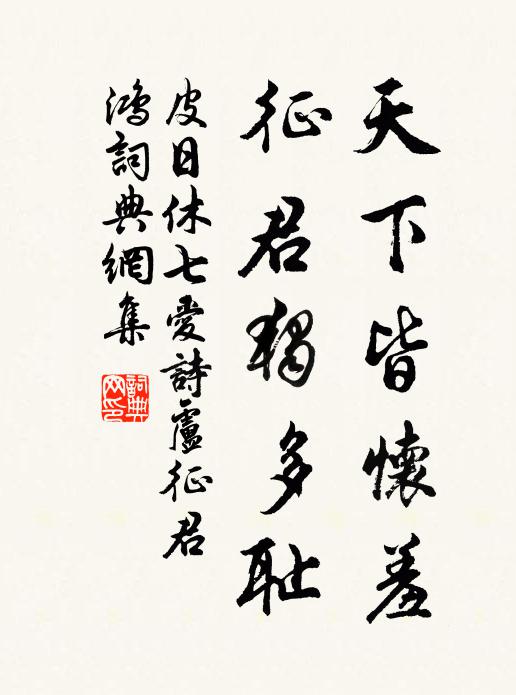 天下皆懷羞
征君獨多耻
皮日休七愛詩盧征君
鴻詞典網集
詞典网印